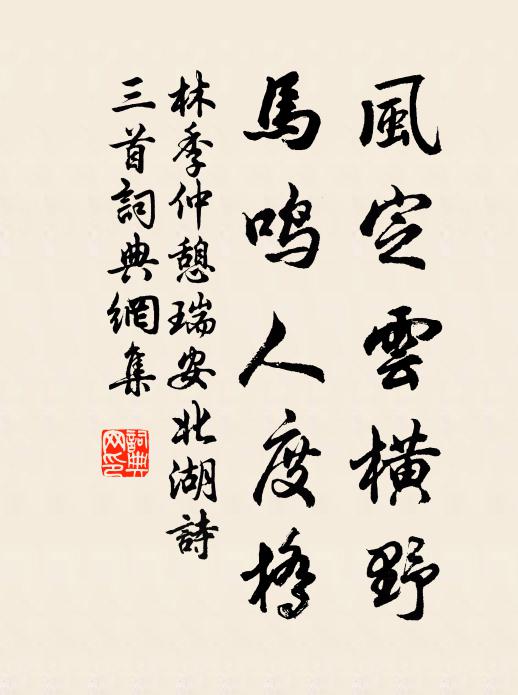 風定雲橫野
馬鳴人度橋
林季仲憩瑞安北湖詩
三首詞典網集
詞典
网印